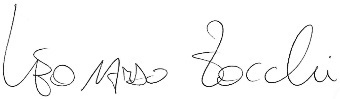 Leonardo Zocchi